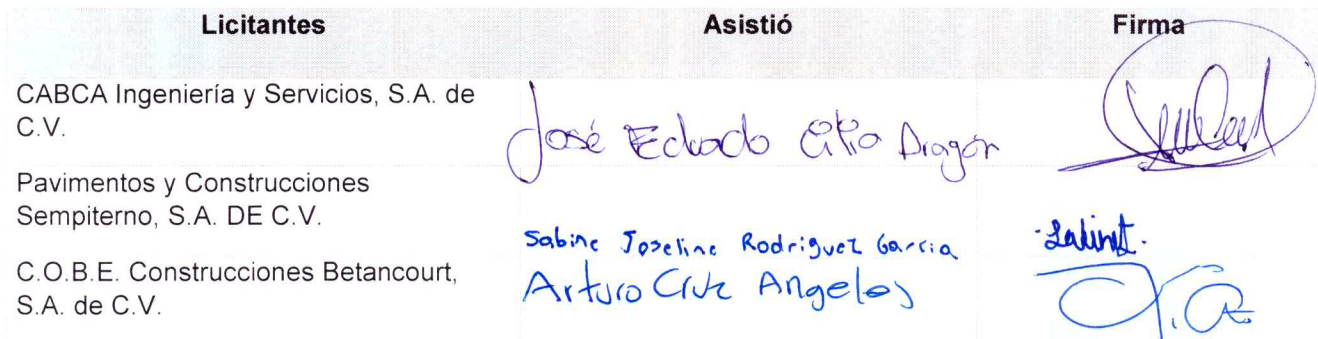 Licitantes Asistió Firma
CABCA Ingeniería y Servicios, S.A. de
C.V.
José Aragón
Pavimentos y Construcciones
Sempiterno, S.A. DE C.V.
Sabine Joseline Rodriguez Garcia
C.O.B.E. Construcciones Betancourt,
S.A. de C.V.
Arturo Cruz Angeles